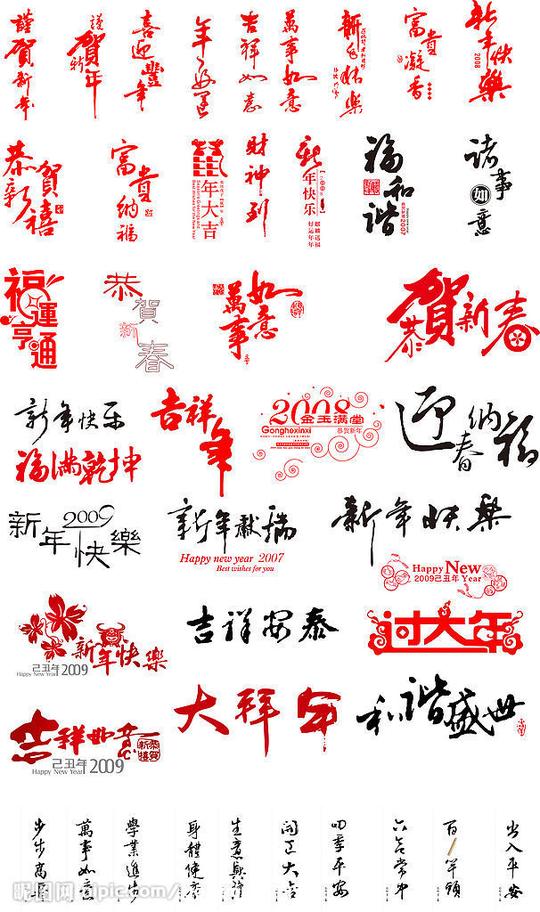 謹賀新年
謹賀新年
喜迎豐年
年年好運
吉祥如意
萬事如意
新年祐樂
富貴凝香
新年快樂
2008
恭賀新禧
富貴納福
年大吉
財神到
新年快乐
福和諧
2007
諸事如意
福運亨通
恭賀新春
萬事如意
恭賀新春
新年快乐
福满乾坤
吉祥年
2008
金玉满堂
Gonghexinxi
恭贺新年
迎春納福
2009
新年快樂
新年獻瑞
Happy new year 2007
Best wishes for you
新年快樂
Happy New
2009己丑年 Year
新年快樂
己丑年2009
Happy New Year
吉祥安泰
过大年
吉祥如意
恭賀新禧
己丑年2009
Happy New Year
大拜年
和諧盛世
步步高陞
萬事如意
學業進步
身體健康
生意興隆
開正大吉
四季平安
六合常中
百年順
出入平安
昵图网 nipic.com